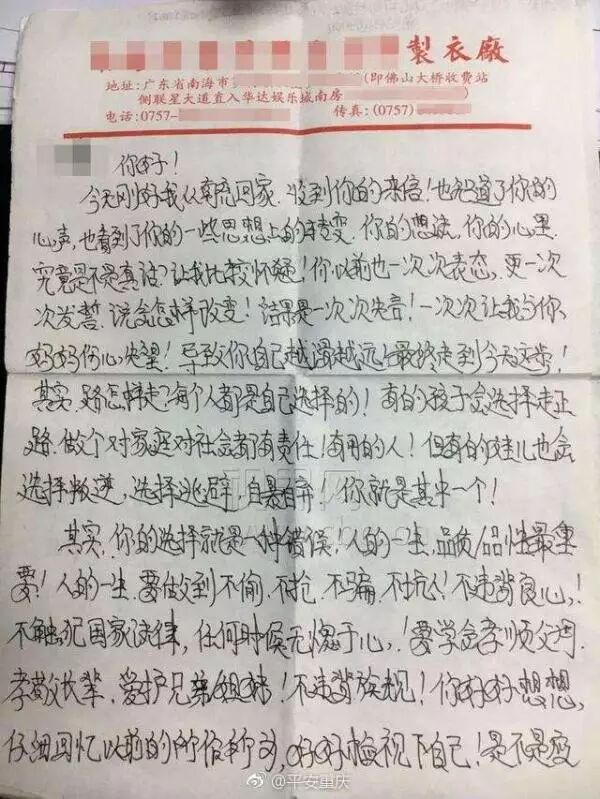 製衣廠
地址:广东省南海市 (即佛山大桥收费站
侧联星大道直入华达娱乐城南房 )
电话:0757- 传真:(0757)
你好!
今天刚好我从南流回家.收到你的来信!也知道了你的
心声,也看到了你的一些思想上的转变.你的想法,你的心里
究竟是不是真话?让我比较怀疑!你以前也一次次表态,更一次
次发誓.说会怎样改变!结果是一次次失言!一次次让我与你
妈妈伤心失望!导致你自己越滑越远!最终走到今天这步!
其实,路怎样走?每个人都是自己选择的!有的孩子会选择走正
路.做个对家庭对社会都有责任!有用的人!但有的娃儿也会
选择叛逆,选择逃避,自暴自弃!你就是其中一个!
其实,你的选择就是一种错误,人的一生.品质/品性最重
要!人的一生.要做到不偷.不抢.不骗.不坑人!不违背良心!
不触犯国家法律,任何时候无愧于心!要学会孝顺父母.
孝敬长辈.爱护兄弟姐妹!不违背族规!你好好想想,
仔细回忆以前的所作所为,好好检视下自己!是不是变
@平安重庆